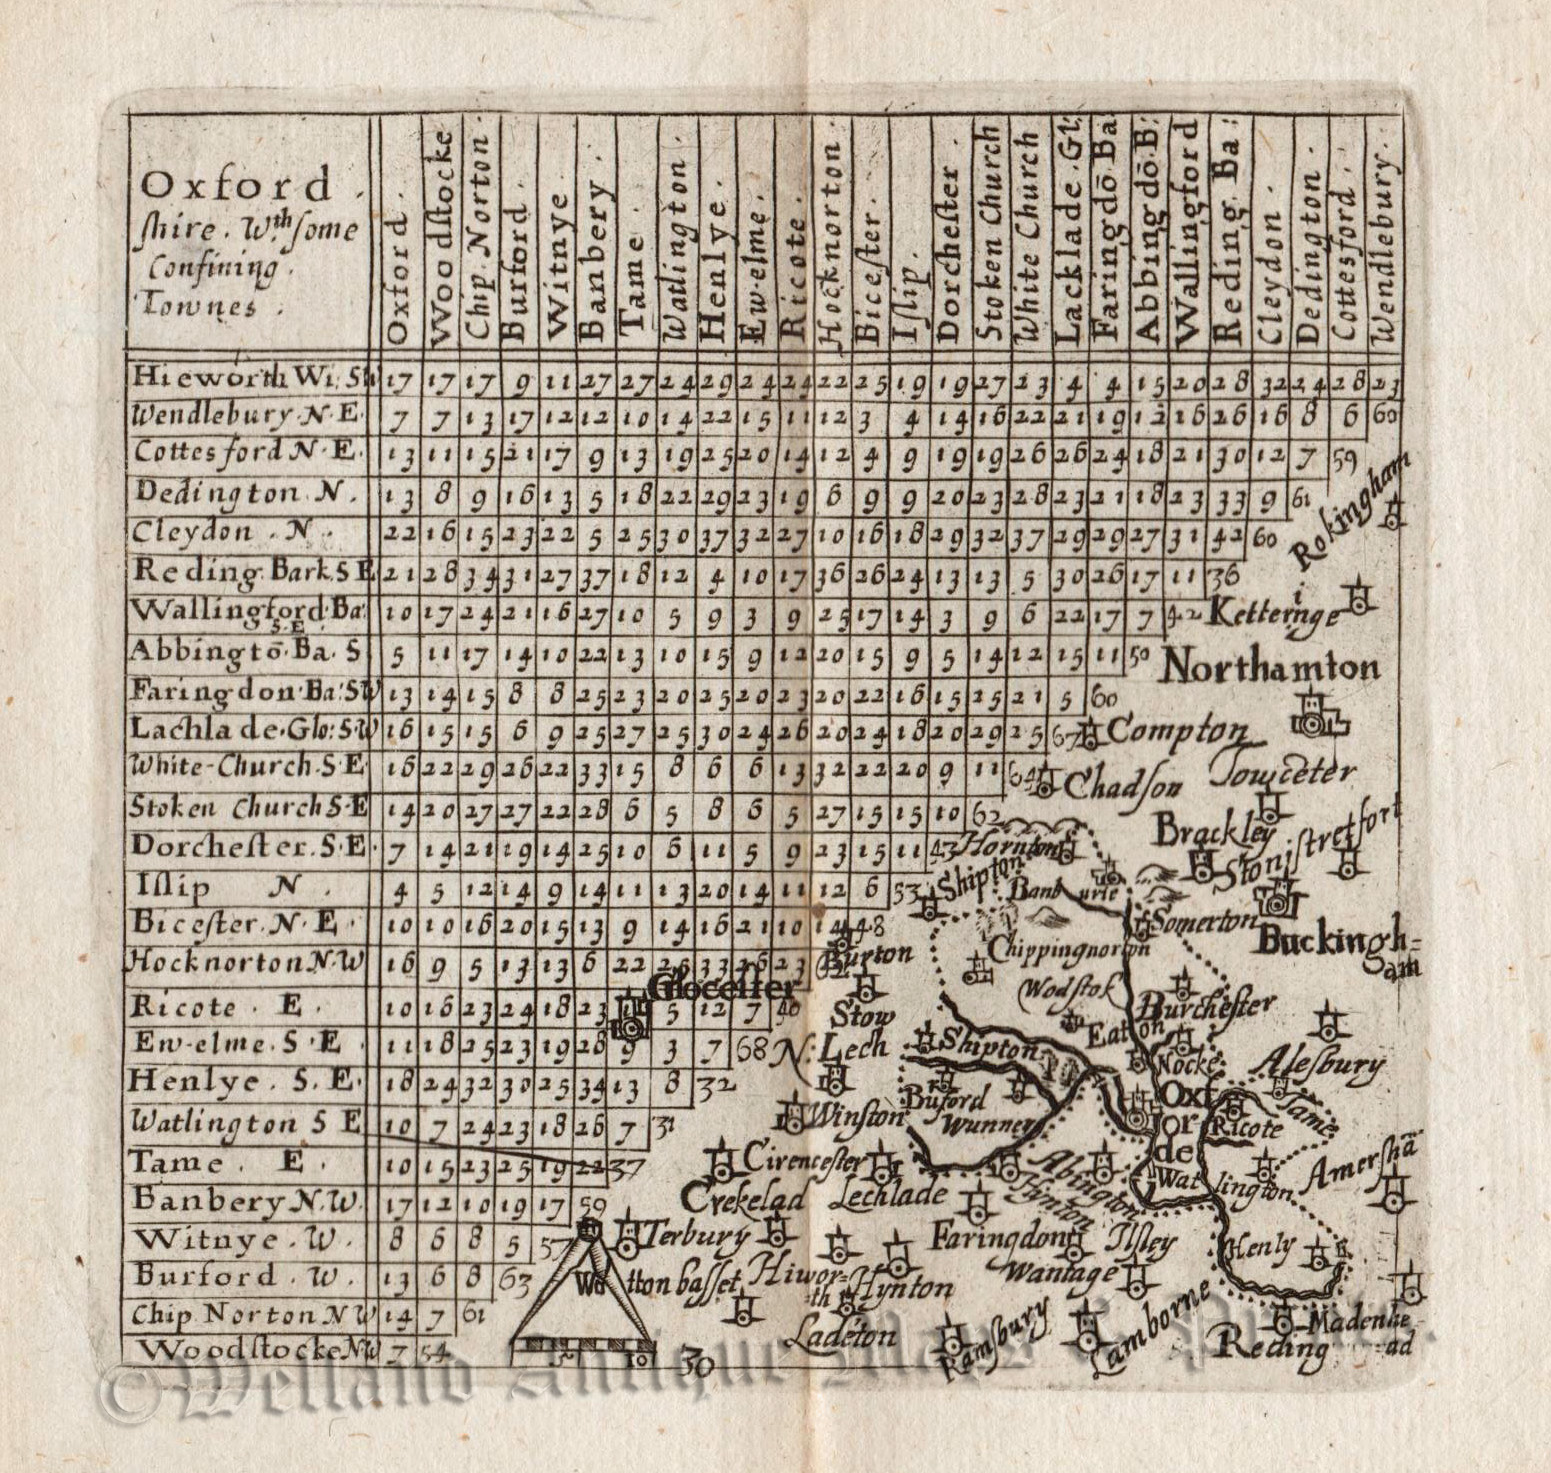 Oxford .
ſhire . Wth ſome
Confining .
Townes .
Oxford .
Woodſtocke
Chip. Norton .
Burford .
Witnye .
Banbery .
Tame .
Watlington .
Henlye .
Ew-elme .
Ricote .
Hocknorton .
Biceſter .
Iſlip .
Dorcheſter .
Stoken Church
White Church
Lacklade . Gl:
Faringdō Ba
Abbingdō . B:
Wallingford
Reding Ba :
Cleydon .
Dedington .
Cottesford .
Wendlebury .
Hieworth Wi: SW 17 17 17 9 11 27 27 24 29 24 24 22 25 19 19 27 23 4 4 15 20 28 32 24 28 23
Wendlebury . N . E . 7 7 13 17 12 12 10 14 22 15 11 12 3 4 14 16 22 21 19 12 16 26 16 8 6 60
Cottesford N . E . 13 11 15 21 17 9 13 19 25 20 14 12 4 9 19 19 26 26 24 18 21 30 12 7 59
Dedington . N . 13 8 9 16 13 5 18 22 29 23 19 6 9 9 20 23 28 23 21 18 23 33 9 61
Cleydon . N . 22 16 15 23 22 5 25 30 37 32 27 10 16 18 29 32 37 29 29 27 31 42 60
Reding Bark. S E 21 28 34 31 27 37 18 12 4 10 17 36 26 24 13 13 5 30 26 17 11 36
Wallingford . Ba: S . E 10 17 24 21 16 27 10 5 9 3 9 25 17 14 3 9 6 22 17 7 42
Abbingtō . Ba . S 5 11 17 14 10 22 13 10 15 9 12 20 15 9 5 14 12 15 11 50
Faringdon . Ba: SW 13 14 15 8 8 25 23 20 25 20 23 20 22 16 15 25 21 5 60
Lachlade . Glo: S . W 16 15 15 6 9 25 27 25 30 24 26 20 24 18 20 29 25 67
White-Church . S . E 16 22 29 26 22 33 15 8 6 6 13 32 22 20 9 11 64
Stoken Church S . E 14 20 27 27 22 28 6 5 8 6 5 27 15 15 10 62
Dorcheſter . S . E . 7 14 21 19 14 25 10 6 11 5 9 23 15 11 43
Iſlip N . 4 5 12 14 9 14 11 13 20 14 11 12 6 53
Biceſter . N . E . 10 10 16 20 15 13 9 14 16 21 10 14 48
Hocknorton N . W 16 9 5 13 13 6 22 26 33 26 23
Ricote . E . 10 16 23 24 18 23 5 12 7 40
Ew-elme . S . E 11 18 25 23 19 28 9 3 7 68
Henlye . S . E . 18 24 32 30 25 34 13 8 32
Watlington S E 10 7 24 23 18 26 7 31
Tame . E . 10 15 23 25 19 22 37
Banbery N . W . 17 12 10 19 17 59
Witnye . W . 8 6 8 5 57
Burford . W . 13 6 8 63
Chip Norton N W 14 7 61
Woodſtocke N W 7 54
Rokingham
Ketteringe
Northamton
Compton
Chadſon
Towceter
Brackley
Stoniſtretfort
Hornton
Shipton
Banburie
Somerton
Buckingh=
am
Chippingnorton
Burton
Wodſtok
Burcheſter
Gloceſter
Stow
Eaton
N: Lech
Shipton
Nocke
Aleſbury
Buford
Oxf
or
de
Tame
Ricote
Winſton
Wunner
Cirenceſter
Abington
Watlington
Amerſhā
Crekelad
Lechlade
Hinton
Terbury
Faringdon
Ilſley
Henly
Wotton baſſet
Hiwor=
th
Hynton
Wantage
Ladeton
Ramſbury
Lamborne
Reding
Madenhe
=ad
5 10 30
© Welland Antique Maps